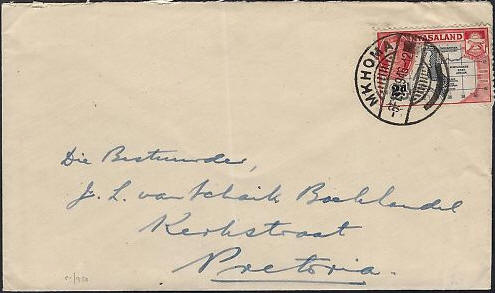 NYASALAND
MKHOMA
Die Bestuurder,
J. L. van Schaik Boekhandel
Kerkstraat
Pretoria.